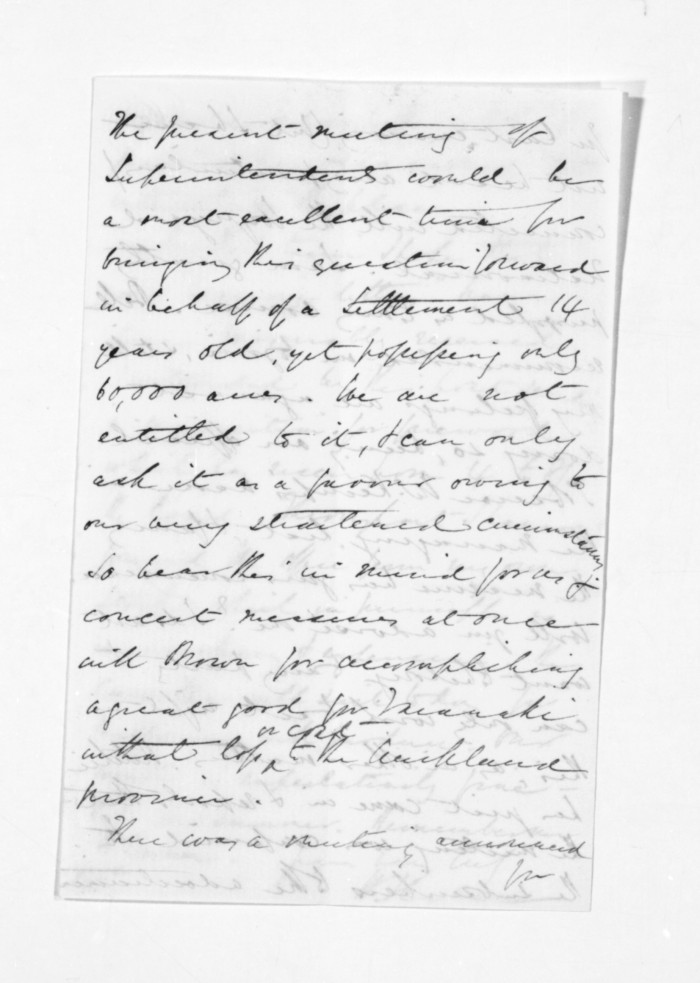 The present meeting of
Superintendents would be
a most excellent time for
bringing this question forward
in behalf of a Settlement 14
years old, yet possessing only
60,000 acres. We are not
entitled to it, & can only
ask it as a favour owing to
our very straitened circumstances
So bear this in mind for us &
concert measures at once
with Brown for accomplishing
a great good for Taranaki
without loss or cost to the Auckland
province.
There was a meeting announced
for